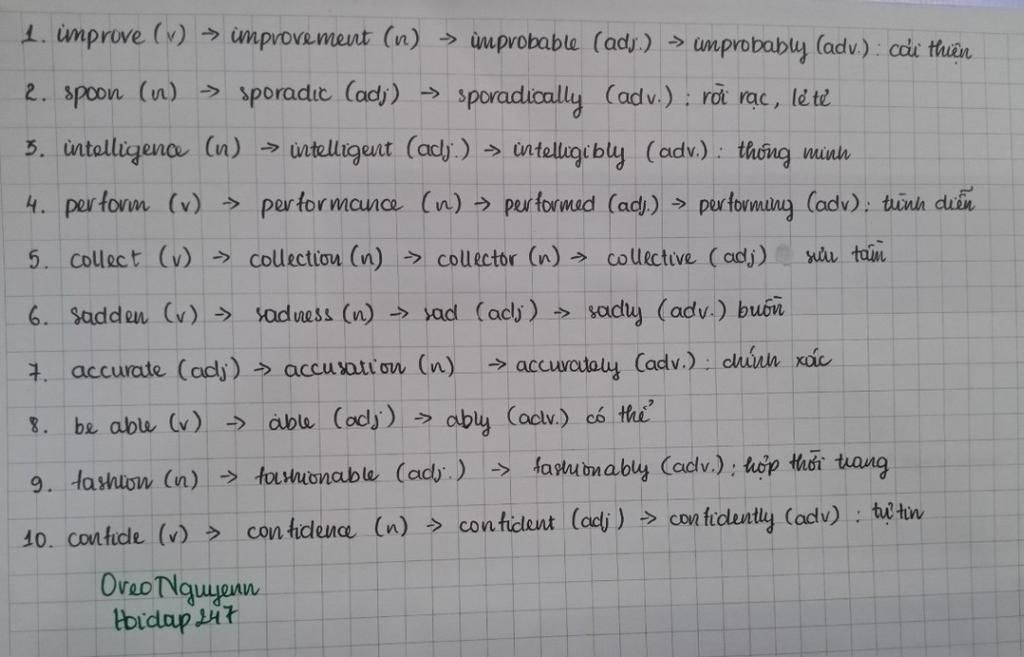 1. improve (v) → improvement (n) → improbable (adj.) → improbably (adv.) : cải thiện
2. spoon (n) → sporadic (adj) → sporadically (adv.) : rời rạc, lẻ tẻ
3. intelligence (n) → intelligent (adj.) → intelligibly (adv.) : thông minh
4. perform (v) → performance (n) → performed (adj.) → performing (adv) : trình diễn
5. collect (v) → collection (n) → collector (n) → collective (adj) sưu tầm
6. sadden (v) → sadness (n) → sad (adj) → sadly (adv.) buồn
7. accurate (adj) → accusation (n) → accurately (adv.) : chính xác
8. be able (v) → able (adj) → ably (adv.) có thể
9. fashion (n) → fashionable (adj.) → fashionably (adv.) : hợp thời trang
10. confide (v) → confidence (n) → confident (adj) → confidently (adv) : tự tin
Oreo Nguyenn
Hoidap247